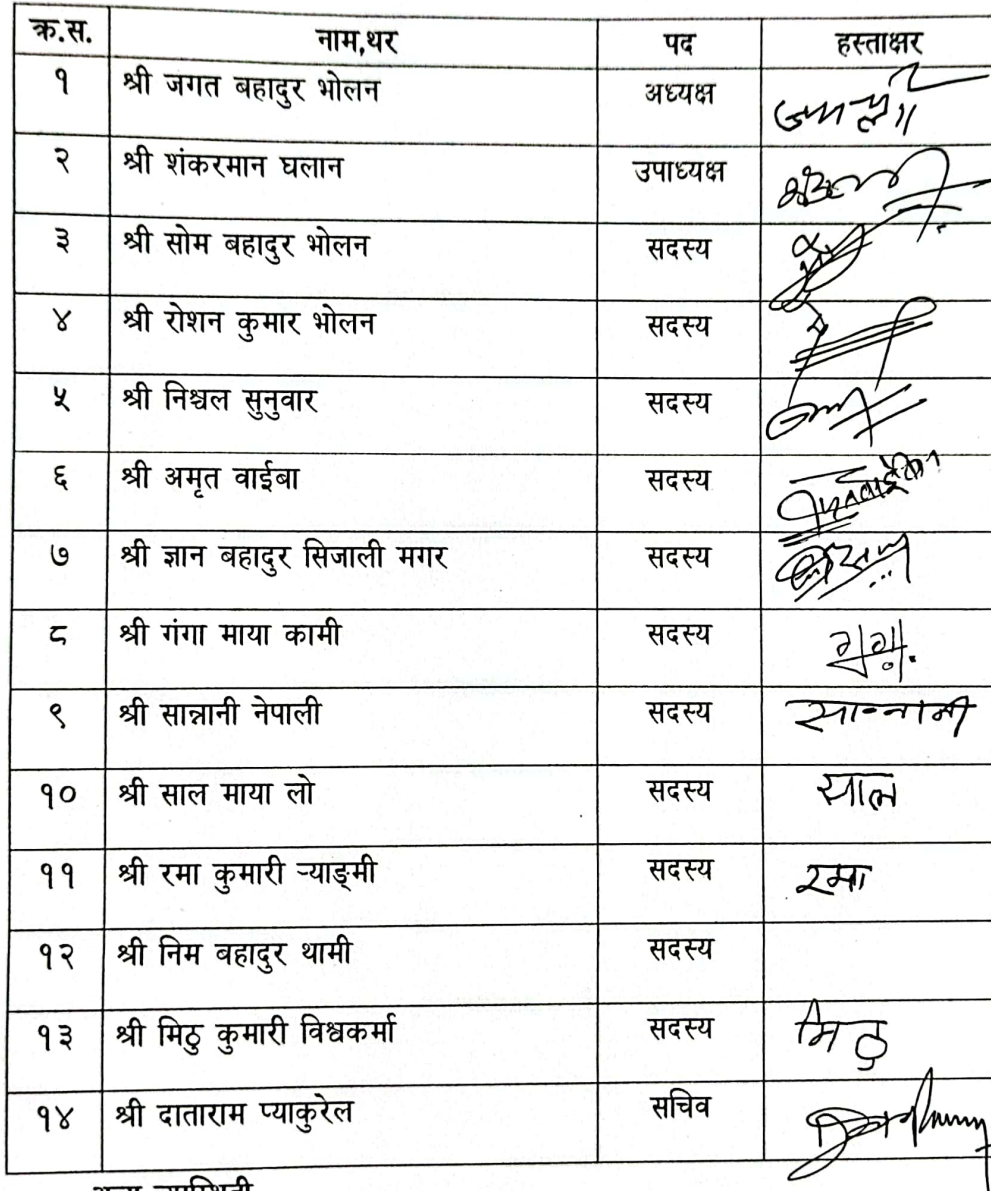 क्र.स. नाम,थर पद हस्ताक्षर
१ श्री जगत बहादुर भोलन अध्यक्ष
२ श्री शंकरमान घलान उपाध्यक्ष
३ श्री सोम बहादुर भोलन सदस्य
४ श्री रोशन कुमार भोलन सदस्य
५ श्री निश्चल सुनुवार सदस्य
६ श्री अमृत वाईबा सदस्य
७ श्री ज्ञान बहादुर सिजाली मगर सदस्य
८ श्री गंगा माया कामी सदस्य
९ श्री सान्नानी नेपाली सदस्य सान्नानी
१० श्री साल माया लो सदस्य साल
११ श्री रमा कुमारी न्याङ्मी सदस्य रमा
१२ श्री निम बहादुर थामी सदस्य
१३ श्री मिठु कुमारी विश्वकर्मा सदस्य मिठु
१४ श्री दाताराम प्याकुरेल सचिव